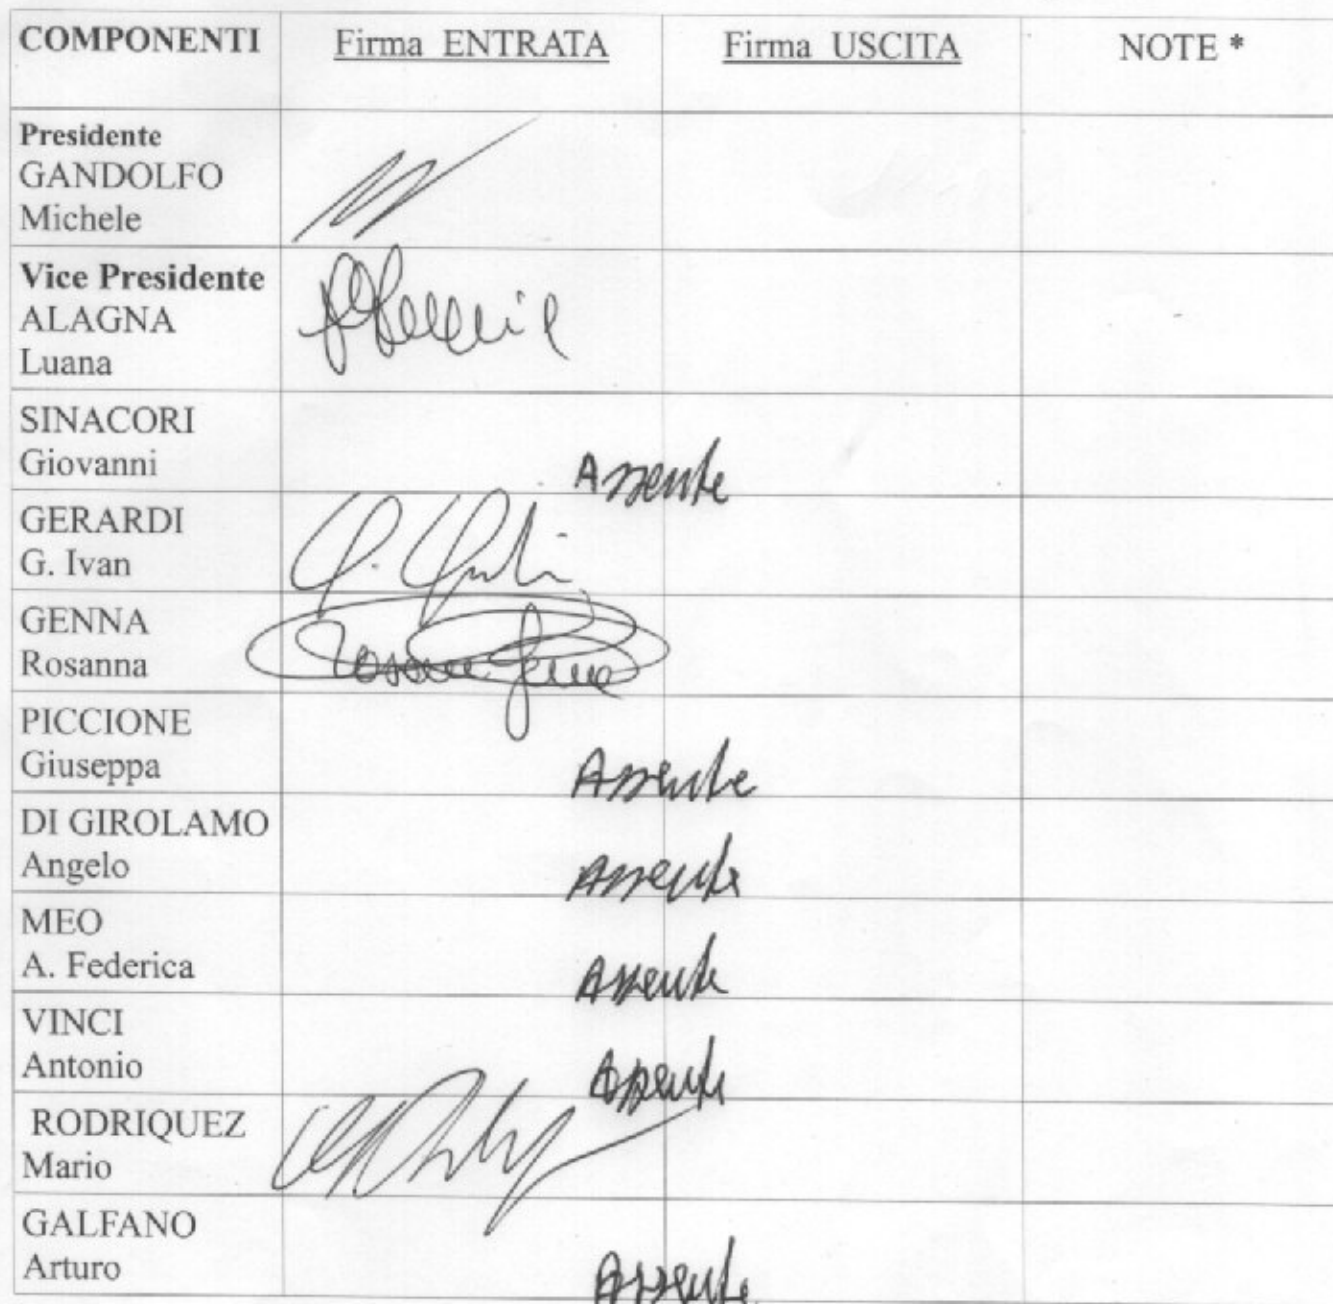 COMPONENTI Firma ENTRATA Firma USCITA NOTE *
Presidente
GANDOLFO
Michele
Vice Presidente
ALAGNA
Luana
SINACORI
Giovanni
Assente
GERARDI
G. Ivan
GENNA
Rosanna
Rosanna Genna
PICCIONE
Giuseppa
Assente
DI GIROLAMO
Angelo
Assente
MEO
A. Federica
Assente
VINCI
Antonio
Assente
RODRIQUEZ
Mario
GALFANO
Arturo
Assente